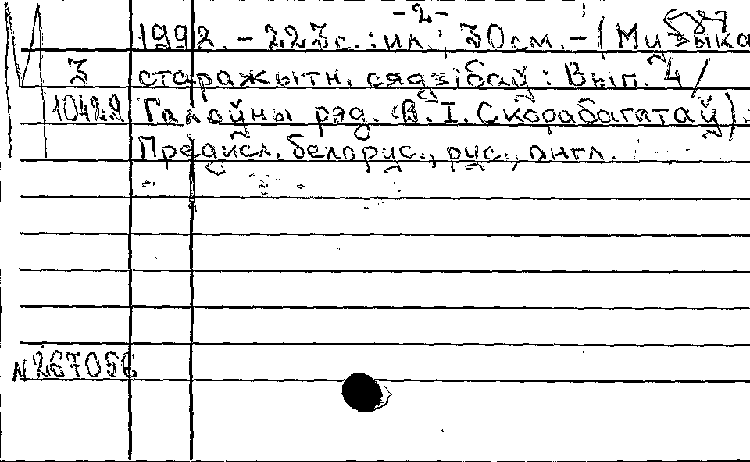 -2-
1992. - 223с.: ил.; 30см. - (Музыка
З старажытн. сядзібаў: Вып. 4/
10422 Галоўны рэд. В.І. Скорабагатаў).
Предисл. белорус., рус., англ.
N267056